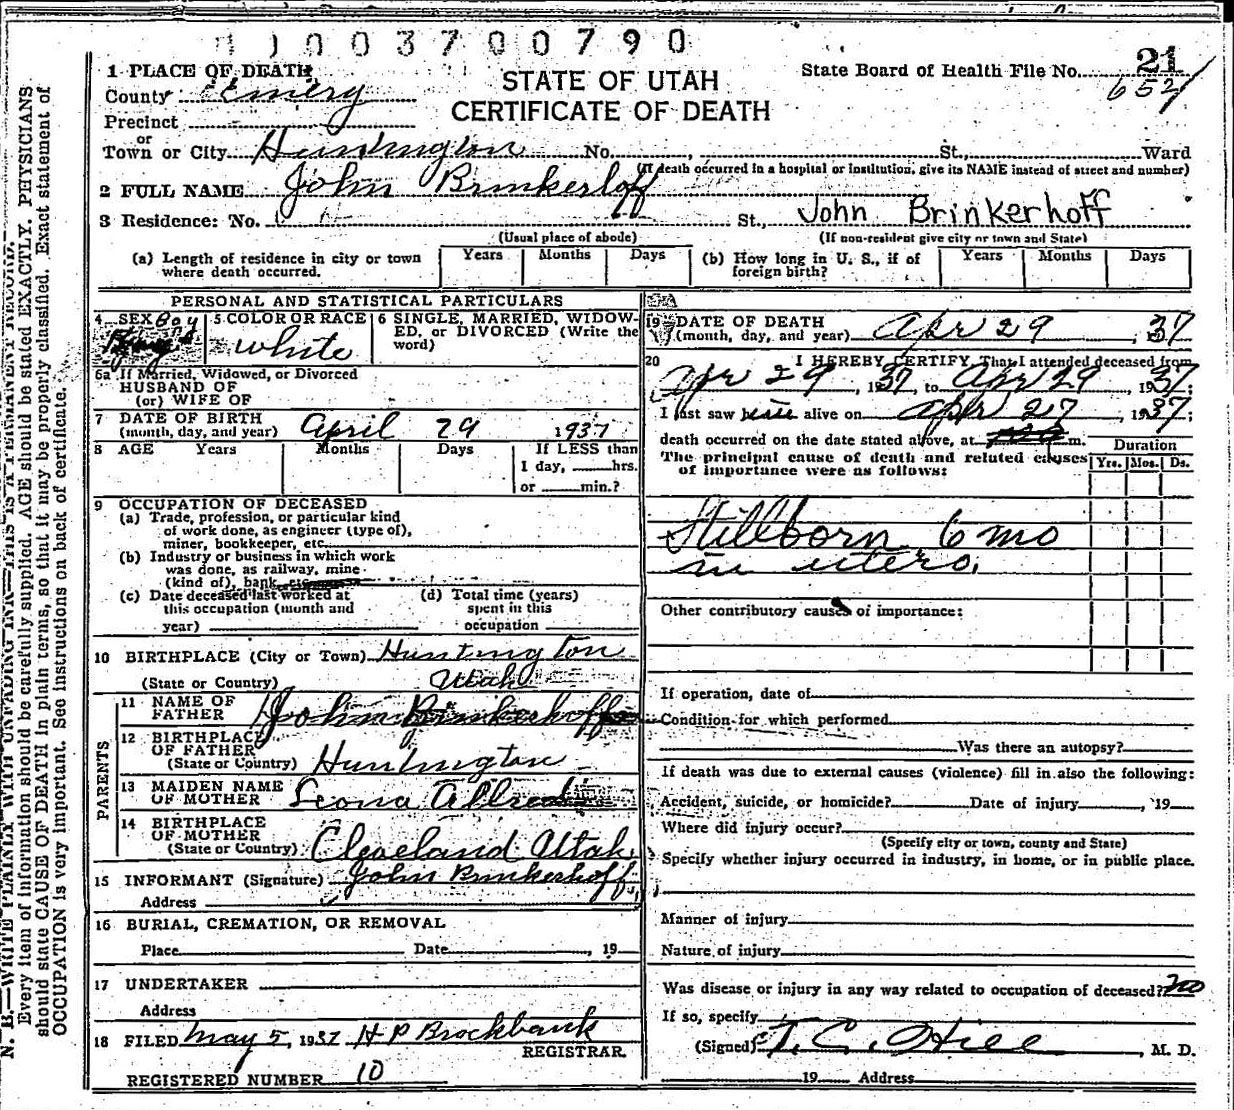 1003700790
STATE OF UTAH
CERTIFICATE OF DEATH
State Board of Health File No. 21
652
1 PLACE OF DEATH
County Emery
Precinct
or
Town or City Huntington No. , St., Ward
(If death occurred in a hospital or institution, give its NAME instead of street and number)
2 FULL NAME John Brinkerhoff
3 Residence: No. St., John Brinkerhoff
(Usual place of abode) (If non-resident give city or town and State)
(a) Length of residence in city or town where death occurred. Years Months Days (b) How long in U. S., if of foreign birth? Years Months Days
PERSONAL AND STATISTICAL PARTICULARS
4 SEX Boy
5 COLOR OR RACE white
6 SINGLE, MARRIED, WIDOWED, or DIVORCED (Write the word)
6a If Married, Widowed, or Divorced
HUSBAND OF
(or) WIFE OF
7 DATE OF BIRTH
(month, day, and year) April 29 1937
8 AGE Years Months Days If LESS than
1 day, hrs.
or min.?
9 OCCUPATION OF DECEASED
(a) Trade, profession, or particular kind
of work done, as engineer (type of),
miner, bookkeeper, etc.
(b) Industry or business in which work
was done, as railway, mine
(kind of), bank, etc.
(c) Date deceased last worked at
this occupation (month and
year)
(d) Total time (years)
spent in this
occupation
10 BIRTHPLACE (City or Town) Huntington
(State or Country) Utah
PARENTS
11 NAME OF
FATHER John Brinkerhoff
12 BIRTHPLACE
OF FATHER
(State or Country) Huntington
13 MAIDEN NAME
OF MOTHER Leona Allred
14 BIRTHPLACE
OF MOTHER
(State or Country) Cleveland Utah
15 INFORMANT (Signature) John Brinkerhoff
Address
16 BURIAL, CREMATION, OR REMOVAL
Place Date , 19
17 UNDERTAKER
Address
18 FILED May 5, 1937 H P Brockbank
REGISTRAR.
REGISTERED NUMBER 10
19 DATE OF DEATH
(month, day, and year) Apr 29 , 37
20 I HEREBY CERTIFY, That I attended deceased from
Apr 29 , 1937, to Apr 29 , 1937;
I last saw him alive on Apr 27 , 1937;
death occurred on the date stated above, at m.
The principal cause of death and related causes
of importance were as follows:
Duration
Yrs. Mos. Ds.
Stillborn 6 mo
in utero.
Other contributory causes of importance:
If operation, date of
Condition for which performed
Was there an autopsy?
If death was due to external causes (violence) fill in also the following:
Accident, suicide, or homicide? Date of injury , 19
Where did injury occur?
(Specify city or town, county and State)
Specify whether injury occurred in industry, in home, or in public place.
Manner of injury
Nature of injury
Was disease or injury in any way related to occupation of deceased? no
If so, specify
(Signed) T. C. Hill , M. D.
19 Address
N. B.—WRITE PLAINLY WITH UNFADING INK—THIS IS A PERMANENT RECORD.
Every item of information should be carefully supplied. AGE should be stated EXACTLY. PHYSICIANS
should state CAUSE OF DEATH in plain terms, so that it may be properly classified. Exact statement of
OCCUPATION is very important. See instructions on back of certificate.